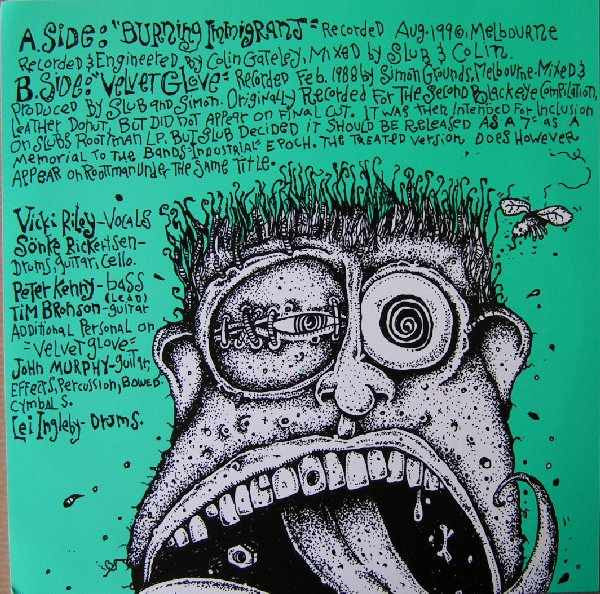 A.Side: "Burning Immigrant" = Recorded Aug. 1990, Melbourne
Recorded & Engineered by Colin Gateley, Mixed by Slub & Colin.
B.Side: "Velvet Glove" = Recorded Feb. 1988 by Simon Grounds, Melbourne-Mixed &
Produced by Slub and Simon. Originally Recorded For The Second Blackeye Compilation,
Leather Donut, But Did Not Appear on Final Cut. It was then Intended For Inclusion
on Slubs Rootman LP. But Slub Decided it Should be Released As A 7" as A
Memorial to the Bands-Industrial Epoch. The Treated version Does However
Appear on Rootman Under The Same Title.
Vicki Riley-Vocals
Sönke Rickertsen-
Drums, guitar, cello.
Peter Kenny-bass
(Lead)
Tim Bronson-guitar
Additional Personal on
="Velvet glove"=
John Murphy-guitar,
Effects, Percussion, Bowed
Cymbals.
Lei Ingleby-Drums.